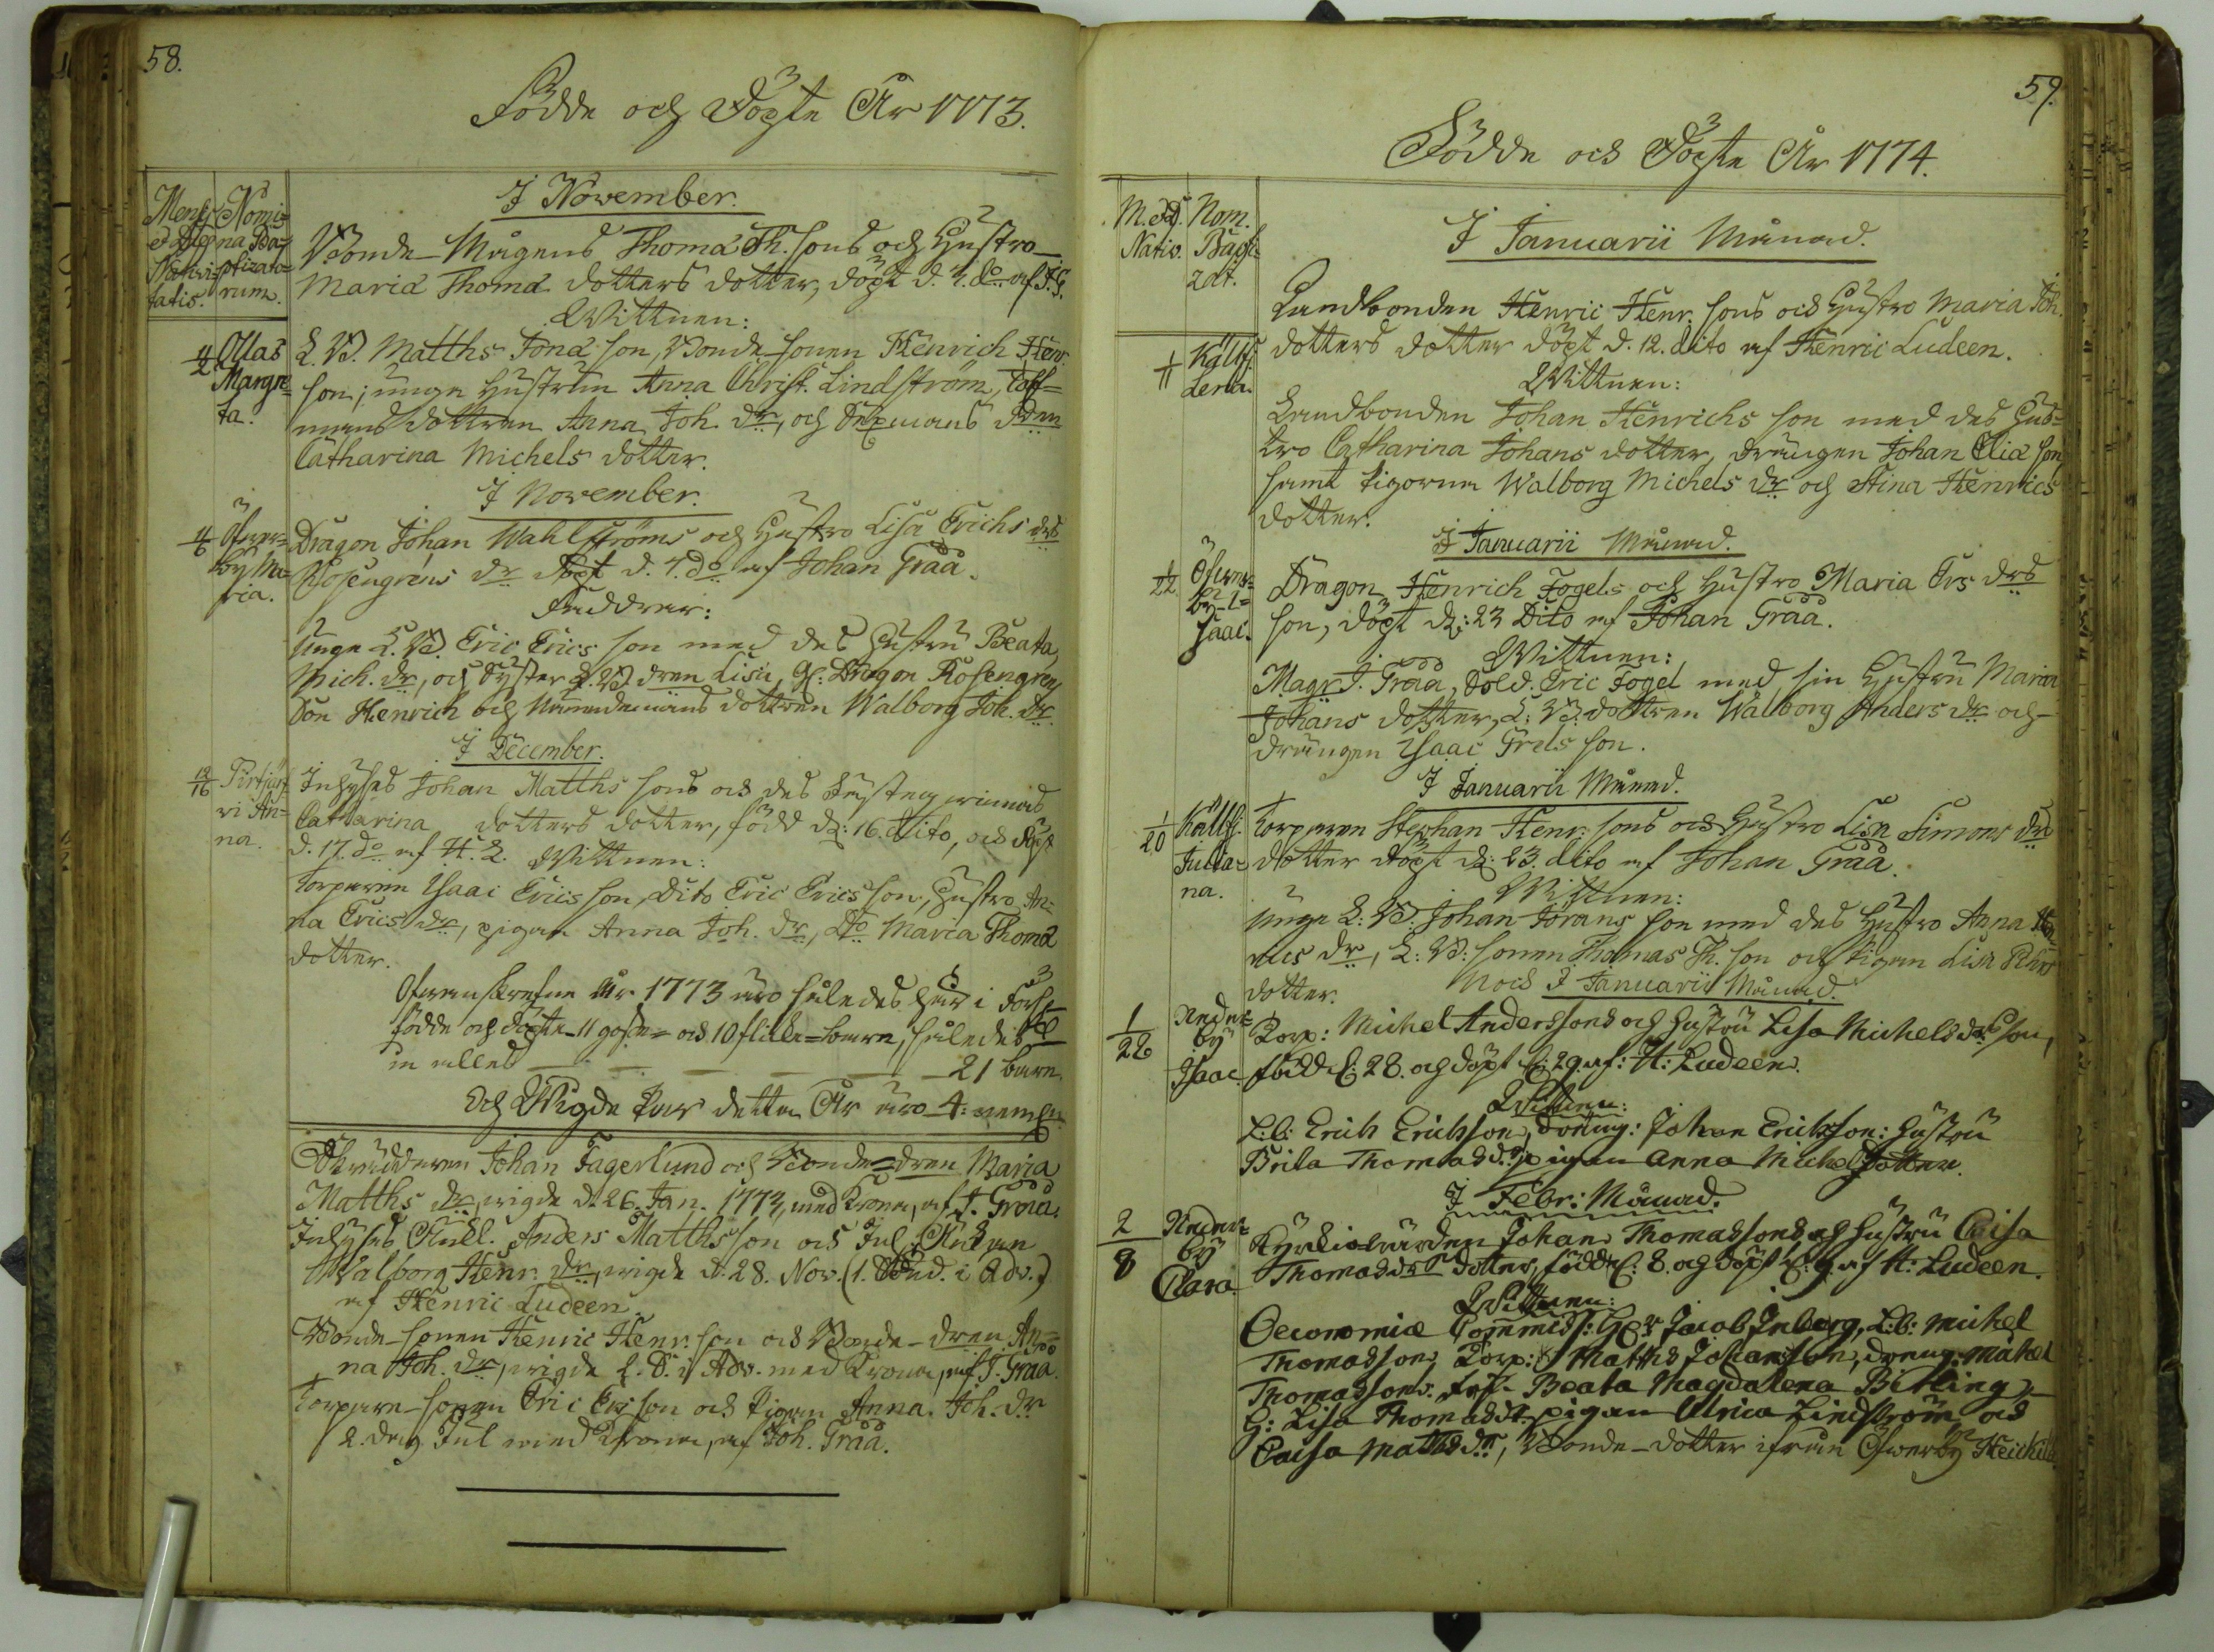 58.
Födde och Döpte År 1773.
Mens. Nomi-
et Dies na Ba-
Nativi- ptizato-
tatis. rum.
I November.
Bonde-Mågens Thomæ Th. sons och Hustro
Mariæ Thomæ dotters dotter, döpt d. 4. do af J. G.
Wittnen:
11/2 Ollas Margre-
ta.
L. B. Matths Jonæ son, Bonde-sonen Henrich Henr.
son; unga hustrun Anna Christ. Lindström, Toff-
mans dottren Anna Joh. dr, och Sexmans dren
Catharina Michels dotter.
I November.
11/6 Öfwer-
by Ma-
ria.
Dragon Johan Wahlströms och Hustro Lisa Erichs drs
Rosengrens dr döpt d. 7. do af Johan Graa.
Faddrar:
Unga L. B. Eric Erics son med des Hustru Beata
Mich. dr, och Syster L. B. dren Lisa, Gl. Dragon Rosengrens
Son Henrich och Nämndemans dottren Walborg Joh. dr.
I December.
12/16 Pirtijär-
wi An-
na.
Inhyses Johan Matths sons och des
Catharina dotters dotter, född d: 16. dito, och döpt
d. 17. do af H. L. Wittnen:
Torparen Isaac Erics son, Dito Eric Erics son, Hustro An-
na Erics dr, pigan Anna Joh. dr, Dto Maria Thomæ
dotter.
Ofwanskrefne År 1773 äro således här i Förs.
födde och döpte 11 gosse- och 10 flicke-barn, således
in alles 21 barn.
Och Wigde Par detta År äro 4: neml.
Skräddaren Johan Fagerlund och Bonde-dren Maria
Matths dr, wigde d. 26. Jan. 1773, med Krona, af J. Graa.
Inhyses Ankl. Anders Matths son och Inh. Änkan
Walborg Henr. dr, wigde d. 28. Nov. (1. Sönd. i Adv.)
af Henric Ludeen.
Bonde-sonen Henric Henr. son och Bonde-dren An-
na Joh. dr, wigde 2. S. i Adv. med Krona, af J. Graa.
Torpare-sonen Eric Er. son och Pigan Anna Joh. dr
2. dag Jul med Krona, af Joh. Graa.
59.
Födde och Döpte År 1774.
M. et D. Nom.
Nativ. Bapt-
zat.
I Januarii Månad.
1/11 Källf.
Lena.
Landbonden Henric Henr. sons och Hustro Maria Joh.
dotters dotter döpt d. 12. dito af Henric Ludeen.
Wittnen:
Landbonden Johan Henrichs son med des Hus-
tro Catharina Johans dotter, drängen Johan Eliæ son
samt pigorna Walborg Michels dr och Stina Henrics
dotter.
I Januarii Månad.
1/22 Öfwer-
by I-
saac.
Dragon Henrich Fogels och Hustro Maria Ers drs
son, döpt d: 23 Dito af Johan Graa.
Wittnen:
Magr J. Graa, Sold. Eric Fogel med sin Hustru Maria
Johans dotter, L: B: dottren Walborg Anders dr och
drängen Isaac Frels son.
I Januarii Månad.
1/20 Källf.
Julia-
na.
Torparen Stephan Henr. sons och Hustro Lisa Simons drs
dotter döpt d: 23. dito af Johan Graa.
Wittnen:
Unga L: B: Johan Jörans son med des Hustro Anna
dr, L: B: sonen Thomas Th. son och Pigan Lisa
dotter.
Noch I Januarii Månad.
1/28 Neder-
by
Isaac.
Torp: Michel Anderssons och hustru Lisa Michelsdr son,
född d: 28. och döpt d: 29. af: H: Ludeen.
Wittnen:
L:b: Erich Erichson, dräng: Johan Erichson: hustru
Brita Thomasdr pigan Anna Michelsdotter.
I Febr: Månad.
2/8 Neder-
by
Clara.
Kyrkiowärden Johan Thomassons och hustru Caisa
Thomasdr dotter, född d: 8. och döpt d: 9. af H: Ludeen.
Wittnen:
Oeconomiæ Commiss: Hr Jacob Inberg, L:b: Michel
Thomasson, Torp: Matths Johansson, dräng: Mathts
Thomassons. Beata Magdalena Bitling,
H: Lisa Thomasdr pigan Ulrica Lindström och
Caisa Mattsdr, Bonde-dotter ifrån Öfwerby Heickilä